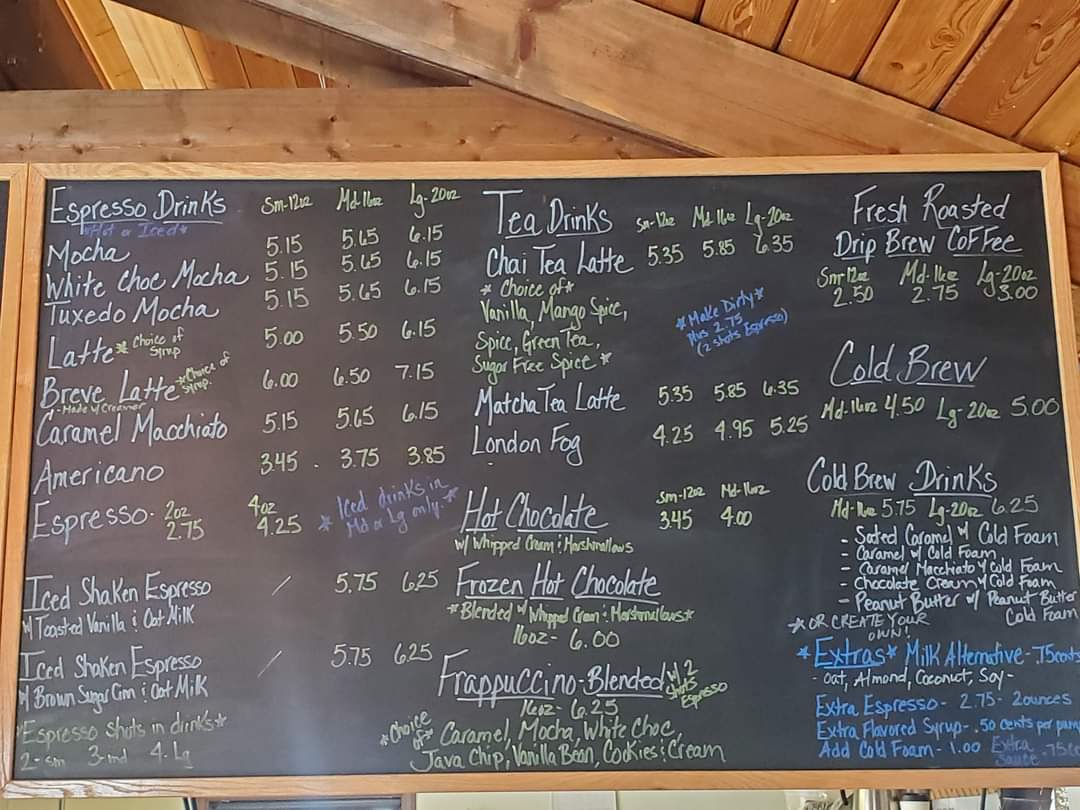 Espresso Drinks Sm-12oz Md-16oz Lg-20oz
*Hot or Iced*
Mocha 5.15 5.65 6.15
White Choc Mocha 5.15 5.65 6.15
Tuxedo Mocha 5.15 5.65 6.15
Latte * Choice of Syrup 5.00 5.50 6.15
Breve Latte * Choice of Syrup. 6.00 6.50 7.15
- Made w/ Creamer
Caramel Macchiato 5.15 5.65 6.15
Americano 3.45 3.75 3.85
Espresso - 2oz 2.75 4oz 4.25
* Iced drinks in
Md or Lg only. *
Iced Shaken Espresso / 5.75 6.25
w/ Toasted Vanilla & Oat Milk
Iced Shaken Espresso / 5.75 6.25
w/ Brown Sugar Cinn & Oat Milk
*Espresso shots in drinks*
2- sm 3-md 4- Lg
Tea Drinks Sm-12oz Md-16oz Lg-20oz
Chai Tea Latte 5.35 5.85 6.35
* Choice of *
Vanilla, Mango Spice,
Spice, Green Tea,
Sugar Free Spice *
*Make Dirty*
Plus 2.75
(2 shots Espresso)
Matcha Tea Latte 5.35 5.85 6.35
London Fog 4.25 4.95 5.25
Hot Chocolate Sm-12oz Md-16oz
3.45 4.00
w/ Whipped Cream & Marshmallows
Frozen Hot Chocolate
*Blended w/ Whipped Cream & Marshmallows*
16oz - 6.00
Frappuccino - Blended w/ 2 shots Espresso
16oz - 6.25
*Choice of* Caramel, Mocha, White Choc,
Java Chip, Vanilla Bean, Cookies & Cream
Fresh Roasted
Drip Brew Coffee
Sm-12oz Md-16oz Lg-20oz
2.50 2.75 3.00
Cold Brew
Md-16oz 4.50 Lg-20oz 5.00
Cold Brew Drinks
Md-16oz 5.75 Lg-20oz 6.25
- Salted Caramel w/ Cold Foam
- Caramel w/ Cold Foam
- Caramel Macchiato w/ Cold Foam
- Chocolate Cream w/ Cold Foam
- Peanut Butter w/ Peanut Butter
Cold Foam
* OR CREATE YOUR
OWN!
*Extras* Milk Alternative - .75 cents
- Oat, Almond, Coconut, Soy -
Extra Espresso - 2.75 - 2 ounces
Extra Flavored Syrup - .50 cents per pump
Add Cold Foam - 1.00 Extra
Sauce .75